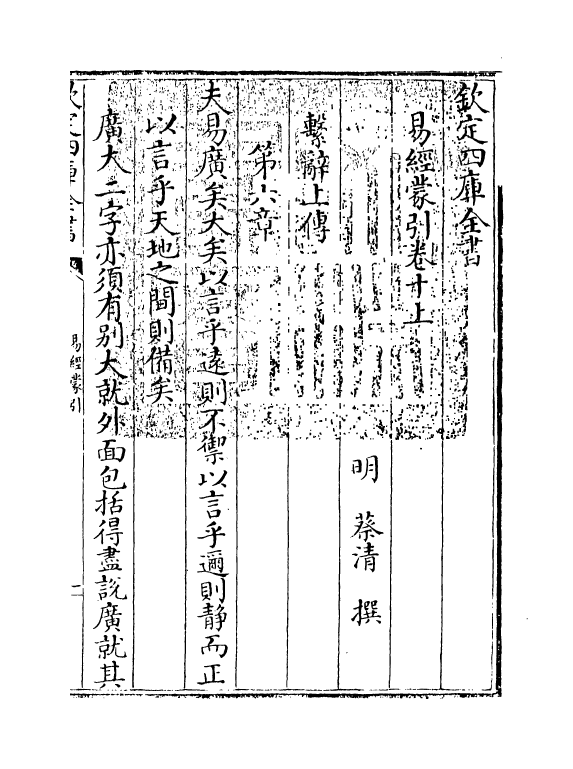 欽定四庫全書
易經蒙引卷十上
明 蔡清 撰
繫辭上傳
第六章
夫易廣矣大矣以言乎遠則不禦以言乎邇則静而正
以言乎天地之間則備矣
廣大二字亦須有别大就外面包括得盡說廣就其
欽定四庫全書
易經蒙引